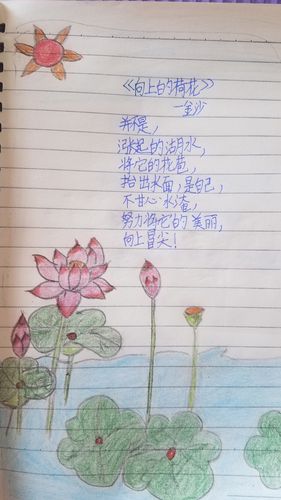 《向上的荷花》
—金沙
并不是，
涨起的湖水，
将它的花苞，
抬出水面，是自己，
不甘心水淹，
努力将它的美丽，
向上冒尖！